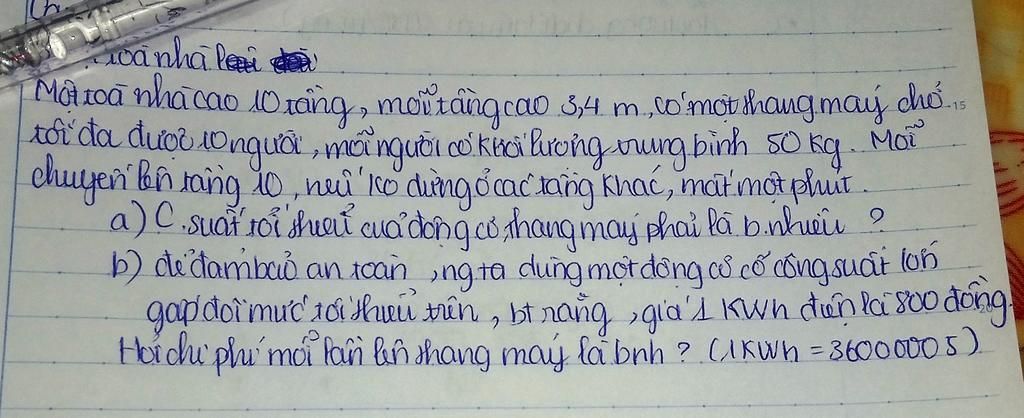 toà nhà
Một toà nhà cao 10 tầng, mỗi tầng cao 3,4 m, có một thang máy chở
tối đa được 10 người, mỗi người có khối lượng trung bình 50 kg. Mỗi
chuyến lên tầng 10, nếu ko dừng ở các tầng khác, mất một phút.
a) C.suất tối thiểu của động cơ thang máy phải là b.nhiêu ?
b) để đảm bảo an toàn, ng ta dùng một động cơ có công suất lớn
gấp đôi mức tối thiểu trên, bt rằng, giá 1 KWh điện là 800 đồng.
Hỏi chi phí mỗi lần lên thang máy là bnh ? (1KWh = 3600000J)